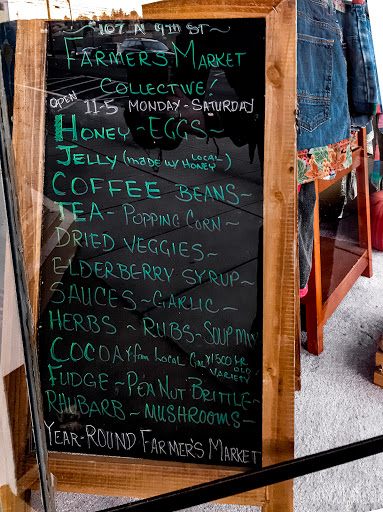 ~107 N 19TH ST~
FARMER'S MARKET
COLLECTIVE!
OPEN 11-5 MONDAY-SATURDAY
HONEY ~EGGS~
JELLY (MADE W/ LOCAL HONEY)
COFFEE BEANS~
TEA~ POPPING CORN~
DRIED VEGGIES~
ELDERBERRY SYRUP~
SAUCES~GARLIC~
HERBS ~RUBS~SOUP MIX
COCOA 1500 YR OLD VARIETY
FUDGE~PEANUT BRITTLE~
RHUBARB~MUSHROOMS~
YEAR-ROUND FARMER'S MARKET